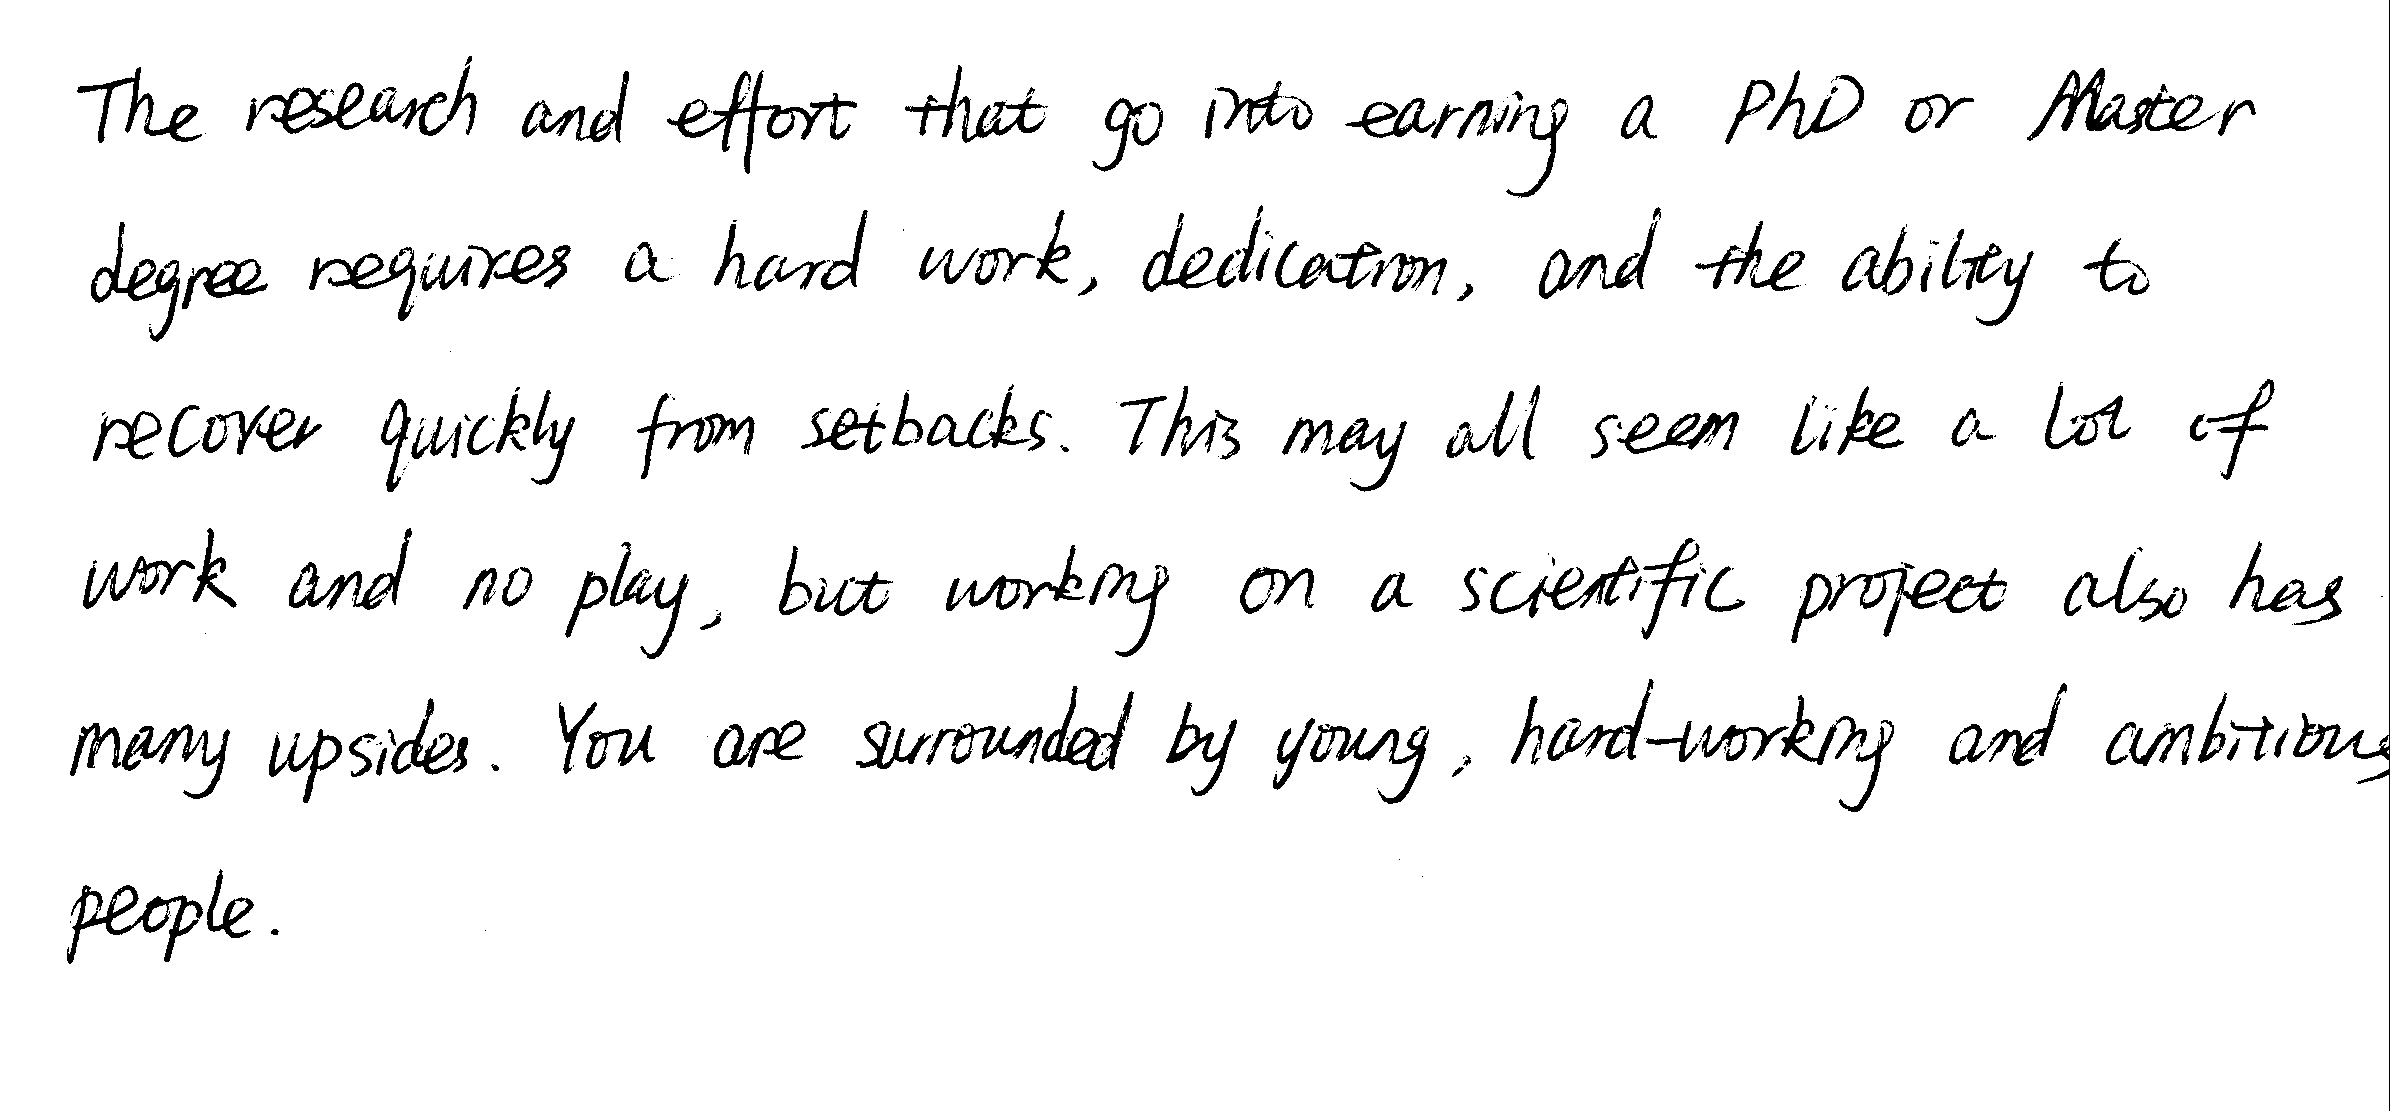 The research and effort that go into earning a PhD or Master
degree requires a hard work, dedication, and the ability to
recover quickly from setbacks. This may all seem like a lot of
work and no play, but working on a scientific project also has
many upsides. You are surrounded by young, hard-working and ambitious
people.